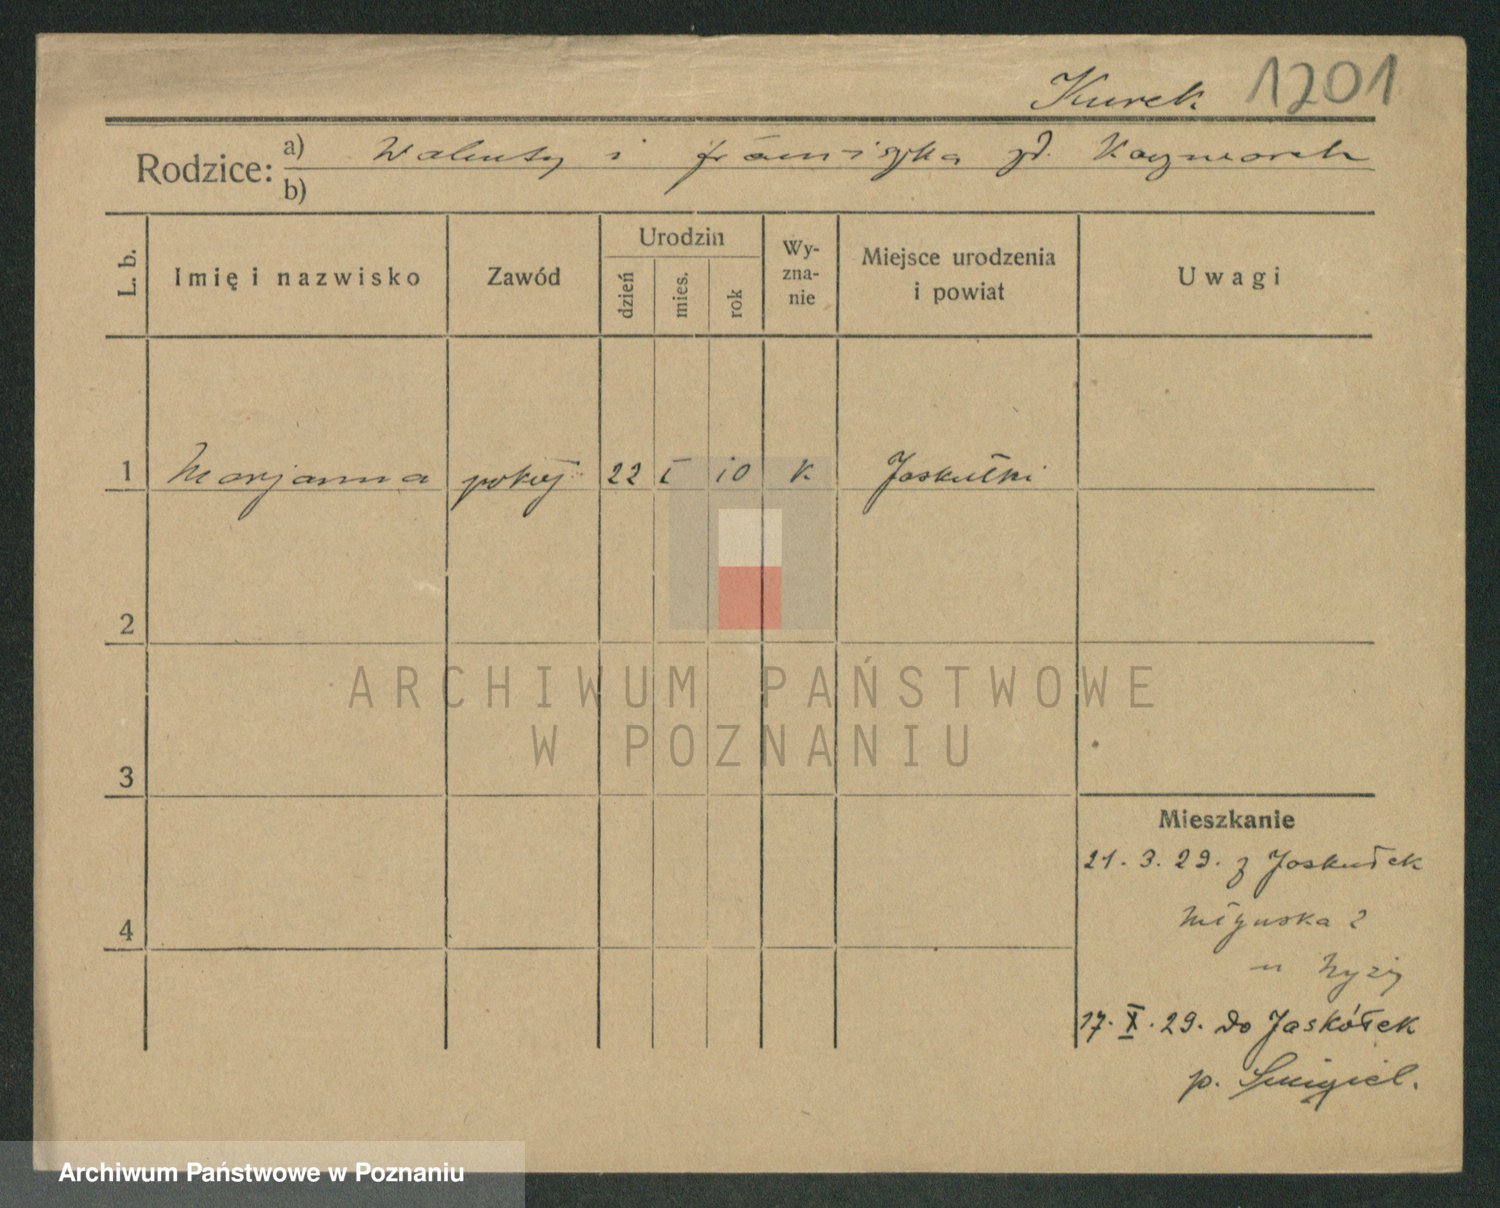 Kurek 1201
Rodzice: a) Walenty i Franciszka zd. Kaczmarek
b)
L. b. Imię i nazwisko Zawód Urodzin dzień mies. rok Wy-zna-nie Miejsce urodzenia i powiat Uwagi
1 Marjanna pokoj 22 I 10 k. Jaskułki
2
3
4
Mieszkanie
21. 3. 29. z Jaskułek
Młyńska 2
17. X. 29. do Jaskółek
p. Śmigiel.
ARCHIWUM PAŃSTWOWE
W POZNANIU
Archiwum Państwowe w Poznaniu